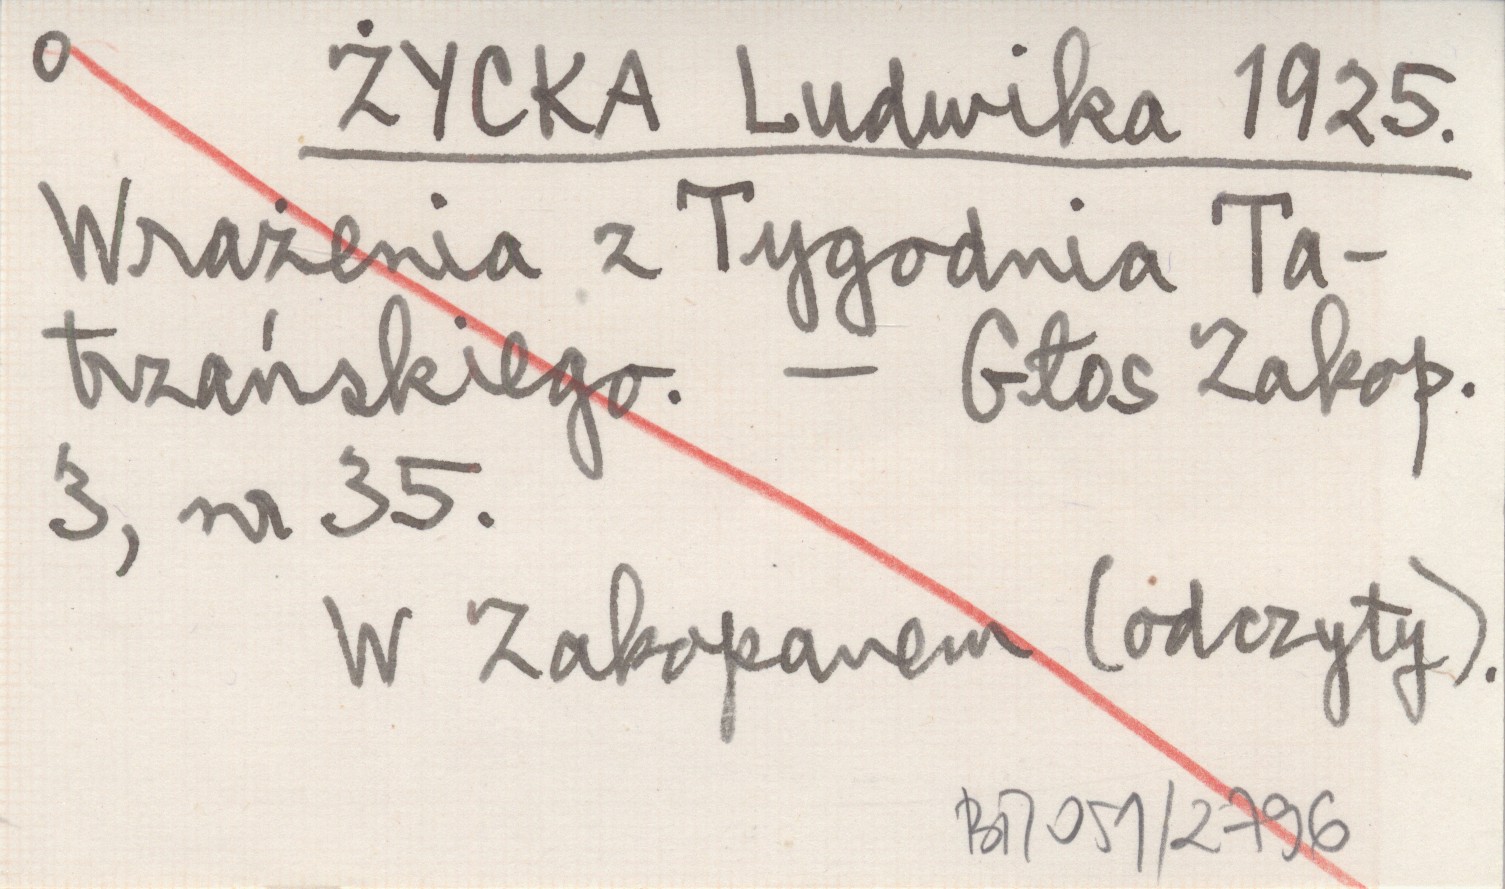 o ŻYCKA Ludwika 1925.
Wrażenia z Tygodnia Ta-
trzańskiego. — Głos Zakop.
3, nr 35.
W Zakopanem (odczyty).
051/2796